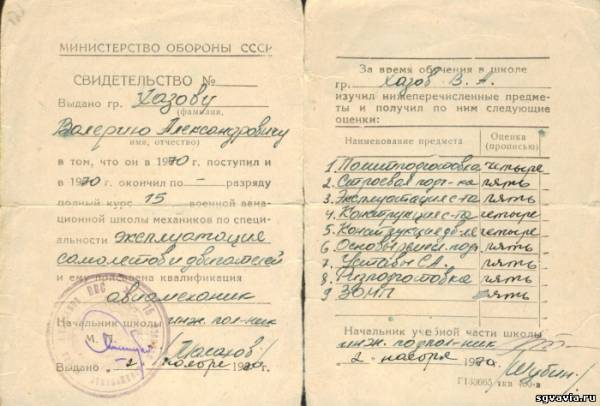 МИНИСТЕРСТВО ОБОРОНЫ СССР
СВИДЕТЕЛЬСТВО №
Выдано гр. Хазову
(фамилия,
Валерию Александровичу
имя, отчество)
в том, что он в 1970 г. поступил и
в 1970 г. окончил по — разряду
полный курс 15 военной авиа-
ционной школы механиков по специ-
альности эксплуатация
самолетов и двигателей
и ему присвоена квалификация
авиамеханик
Начальник школы
инж. пол-ник
М.
Выдано „2" ноября 1970 г.
За время обучения в школе
гр. Хазов В. А.
изучил нижеперечисленные предме-
ты и получил по ним следующие
оценки:
Наименование предмета
Оценка
(прописью)
1. Политподготовка четыре
2. Строевая под-ка пять
3. Эксплуатация с-та пять
4. Конструкция с-та четыре
5. Конструкция дв-ля четыре
6. Основы пять
7 Уставы СА. пять
8. Физподготовка пять
9 ЗОМП пять
Начальник учебной части школы
инж. подпол-ник
/Шубин/
2 ноября 1970г.
sgvavia.ru